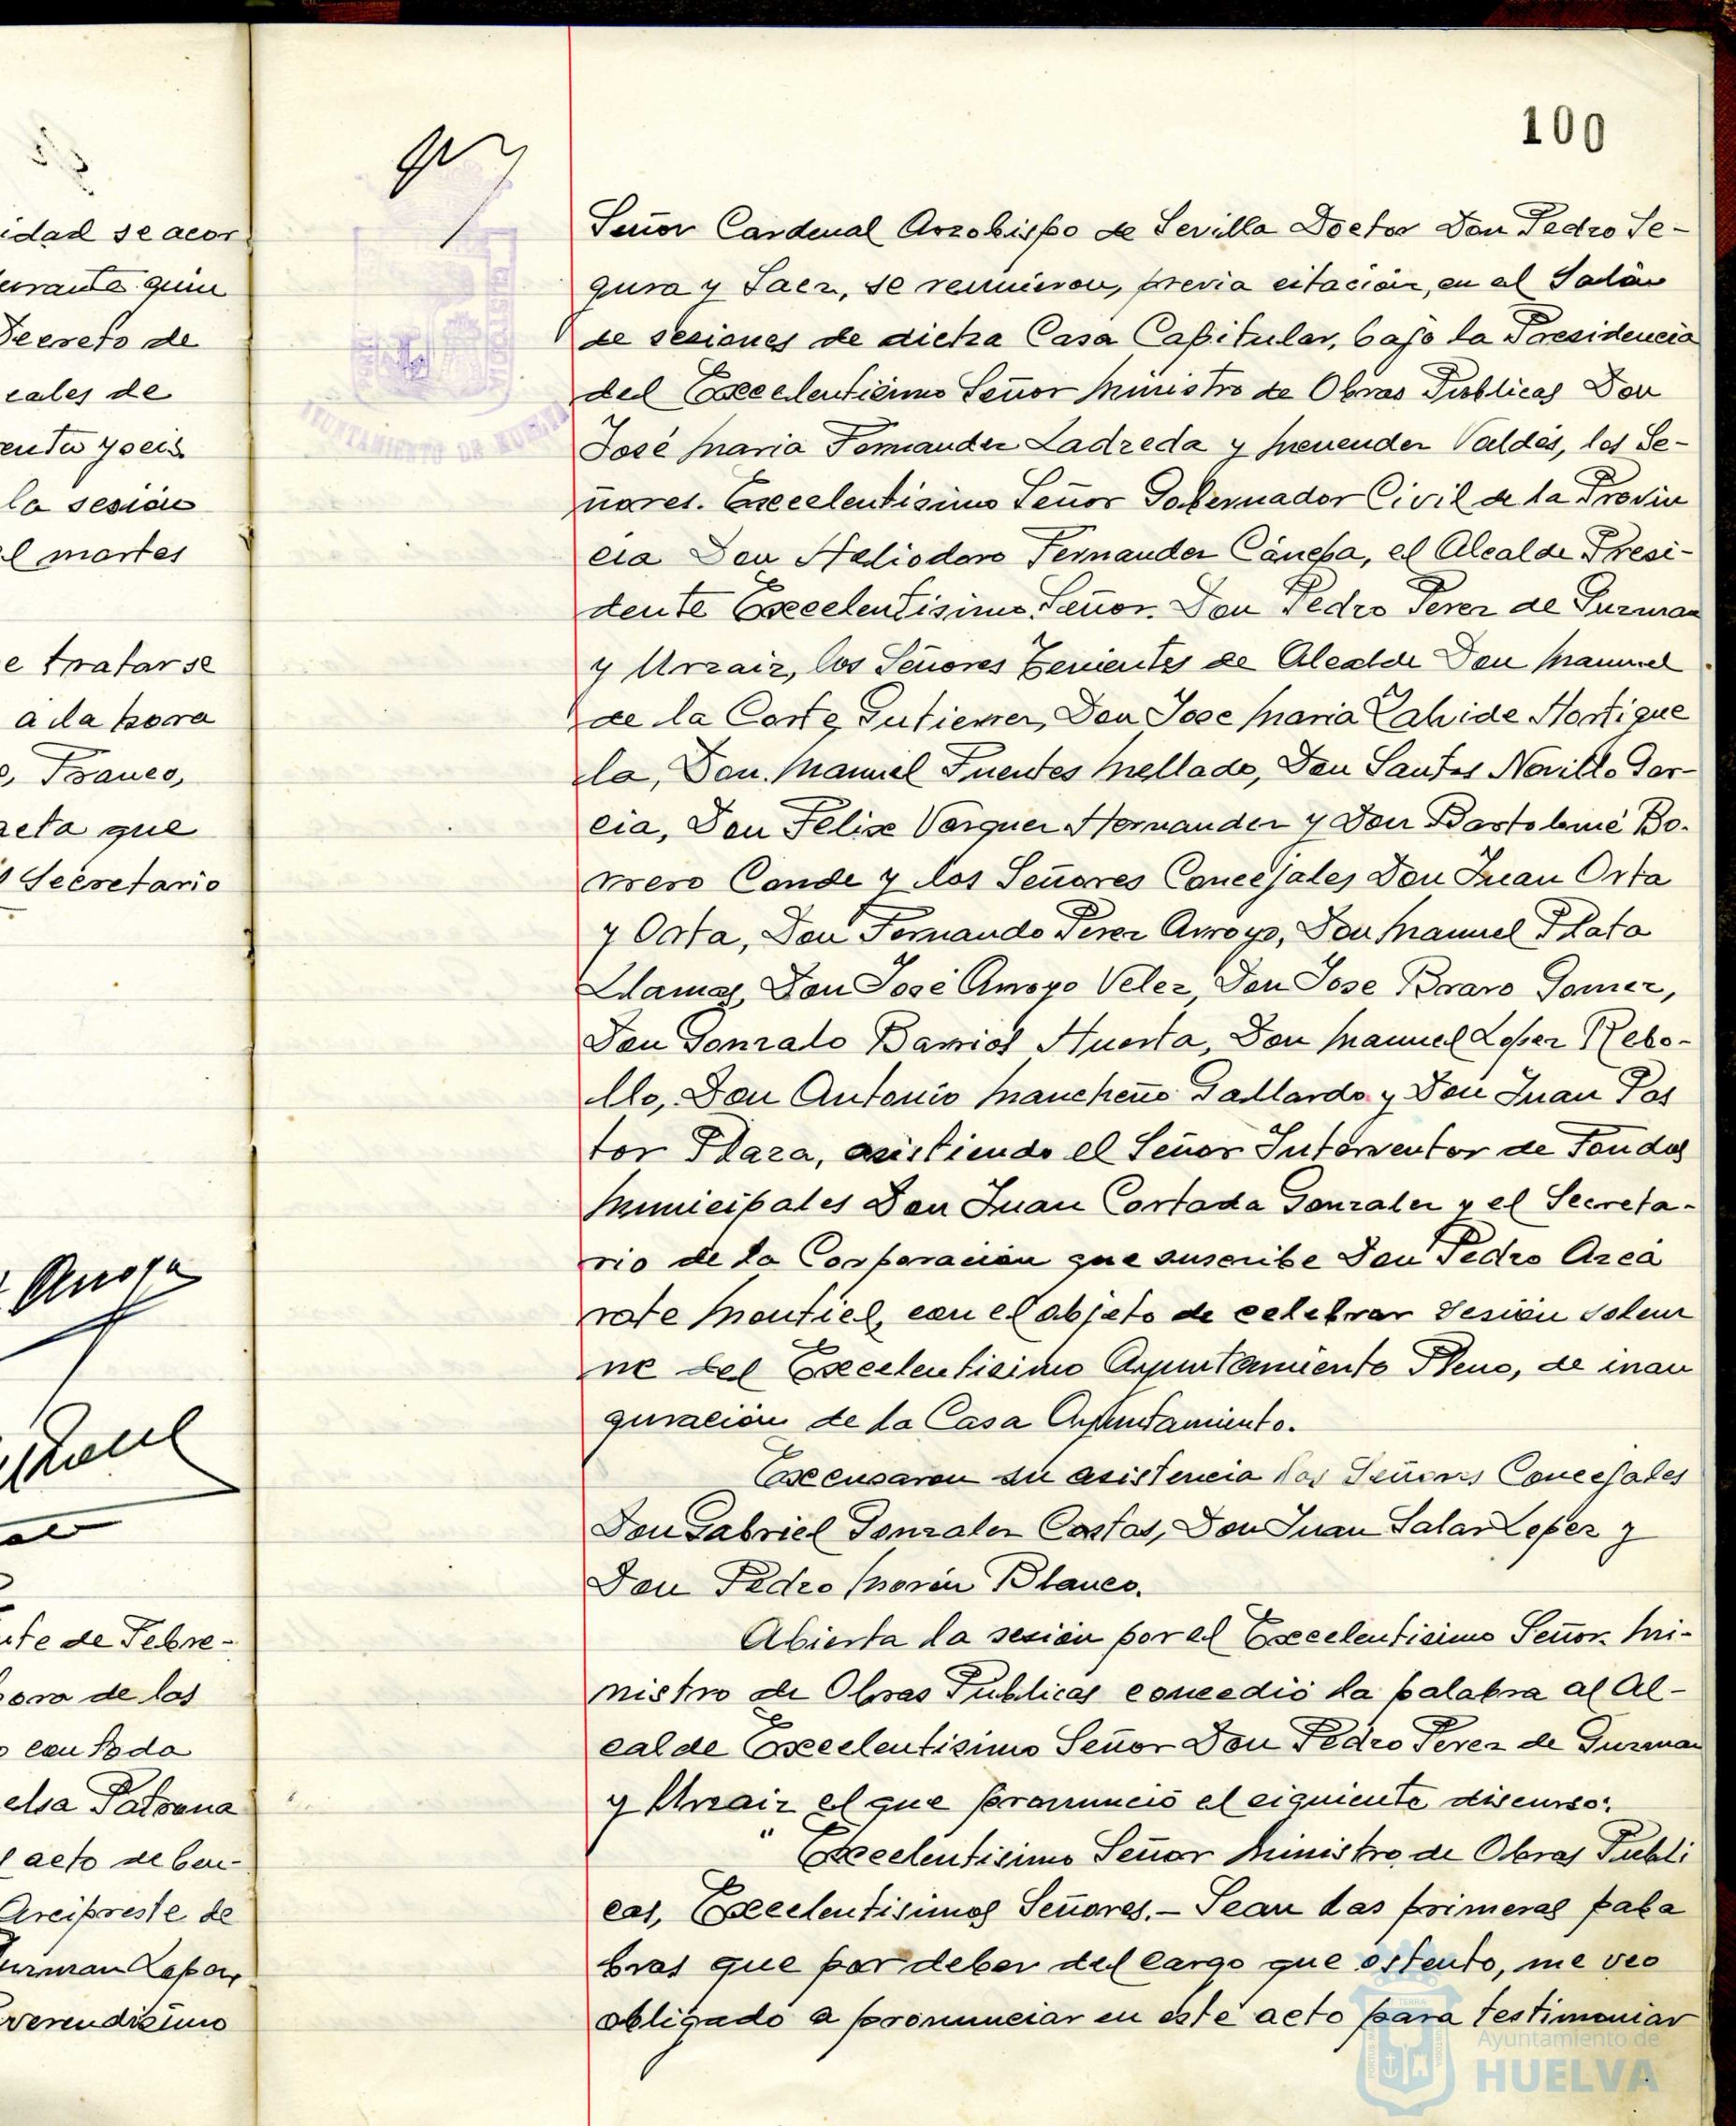 100
Señor Cardenal Arzobispo de Sevilla Doctor Don Pedro Se-
gura y Saez, se reunieron, previa citación, en el Salón
de sesiones de dicha Casa Capitular, bajo la Presidencia
del Excelentisimo Señor Ministro de Obras Publicas Don
José Maria Fernandez Ladreda y Menendez Valdés, los Se-
ñores. Excelentisimo Señor Gobernador Civil de la Provin
cia Don Heliodoro Fernandez Cánepa, el Alcalde Presi-
dente Excelentisimo Señor. Don Pedro Perez de Guzman
y Urzaiz, los Señores Tenientes de Alcalde Don Manuel
de la Corte Gutierrez, Don Jose Maria Lahide Hortigue
la, Don Manuel Fuentes Mellado, Don Santos Novillo Gar-
cia, Don Felix Vazquez Hernandez y Don Bartolomé Bo-
rrero Conde y los Señores Concejales Don Juan Orta
y Orta, Don Fernando Perez Arroyo, Don Manuel Plata
Llamas, Don José Arroyo Velez, Don Jose Bravo Gomez,
Don Gonzalo Barrios Huerta, Don Manuel Lopez Rebo-
llo, Don Antonio Mancheño Gallardo y Don Juan Pas
tor Plaza, asistiendo el Señor Interventor de Fondos
Municipales Don Juan Cortada Gonzalez y el Secreta-
rio de la Corporación que suscribe Don Pedro Azcá
rate Montiel, con el objeto de celebrar sesión solem
ne del Excelentisimo Ayuntamiento Pleno, de inau
guración de la Casa Ayuntamiento.
Excusaron su asistencia los Señores Concejales
Don Gabriel Gonzalez Costas, Don Juan Salas Lopez y
Don Pedro Morón Blanco.
Abierta la sesión por el Excelentisimo Señor Mi-
nistro de Obras Publicas concedió la palabra al Al-
calde Excelentisimo Señor Don Pedro Perez de Guzman
y Urzaiz el que pronunció el siguiente discurso:
" Excelentisimo Señor Ministro de Obras Publi
cas, Excelentisimos Señores.- Sean las primeras pala
bras que por deber del cargo que ostento, me veo
obligado a pronunciar en este acto para testimoniar
idad se acor
quin
Decreto de
cales de
enta y seis
la sesión
el martes
e tratarse
a la hora
Franco,
acta que
Secretario
Arroyo
de Febre-
hora de los
con toda
elsa Patrona
acto de ben-
Arcipreste de
uzman Lopez,
verendisimo
AYUNTAMIENTO DE HUELVA
Ayuntamiento de
HUELVA